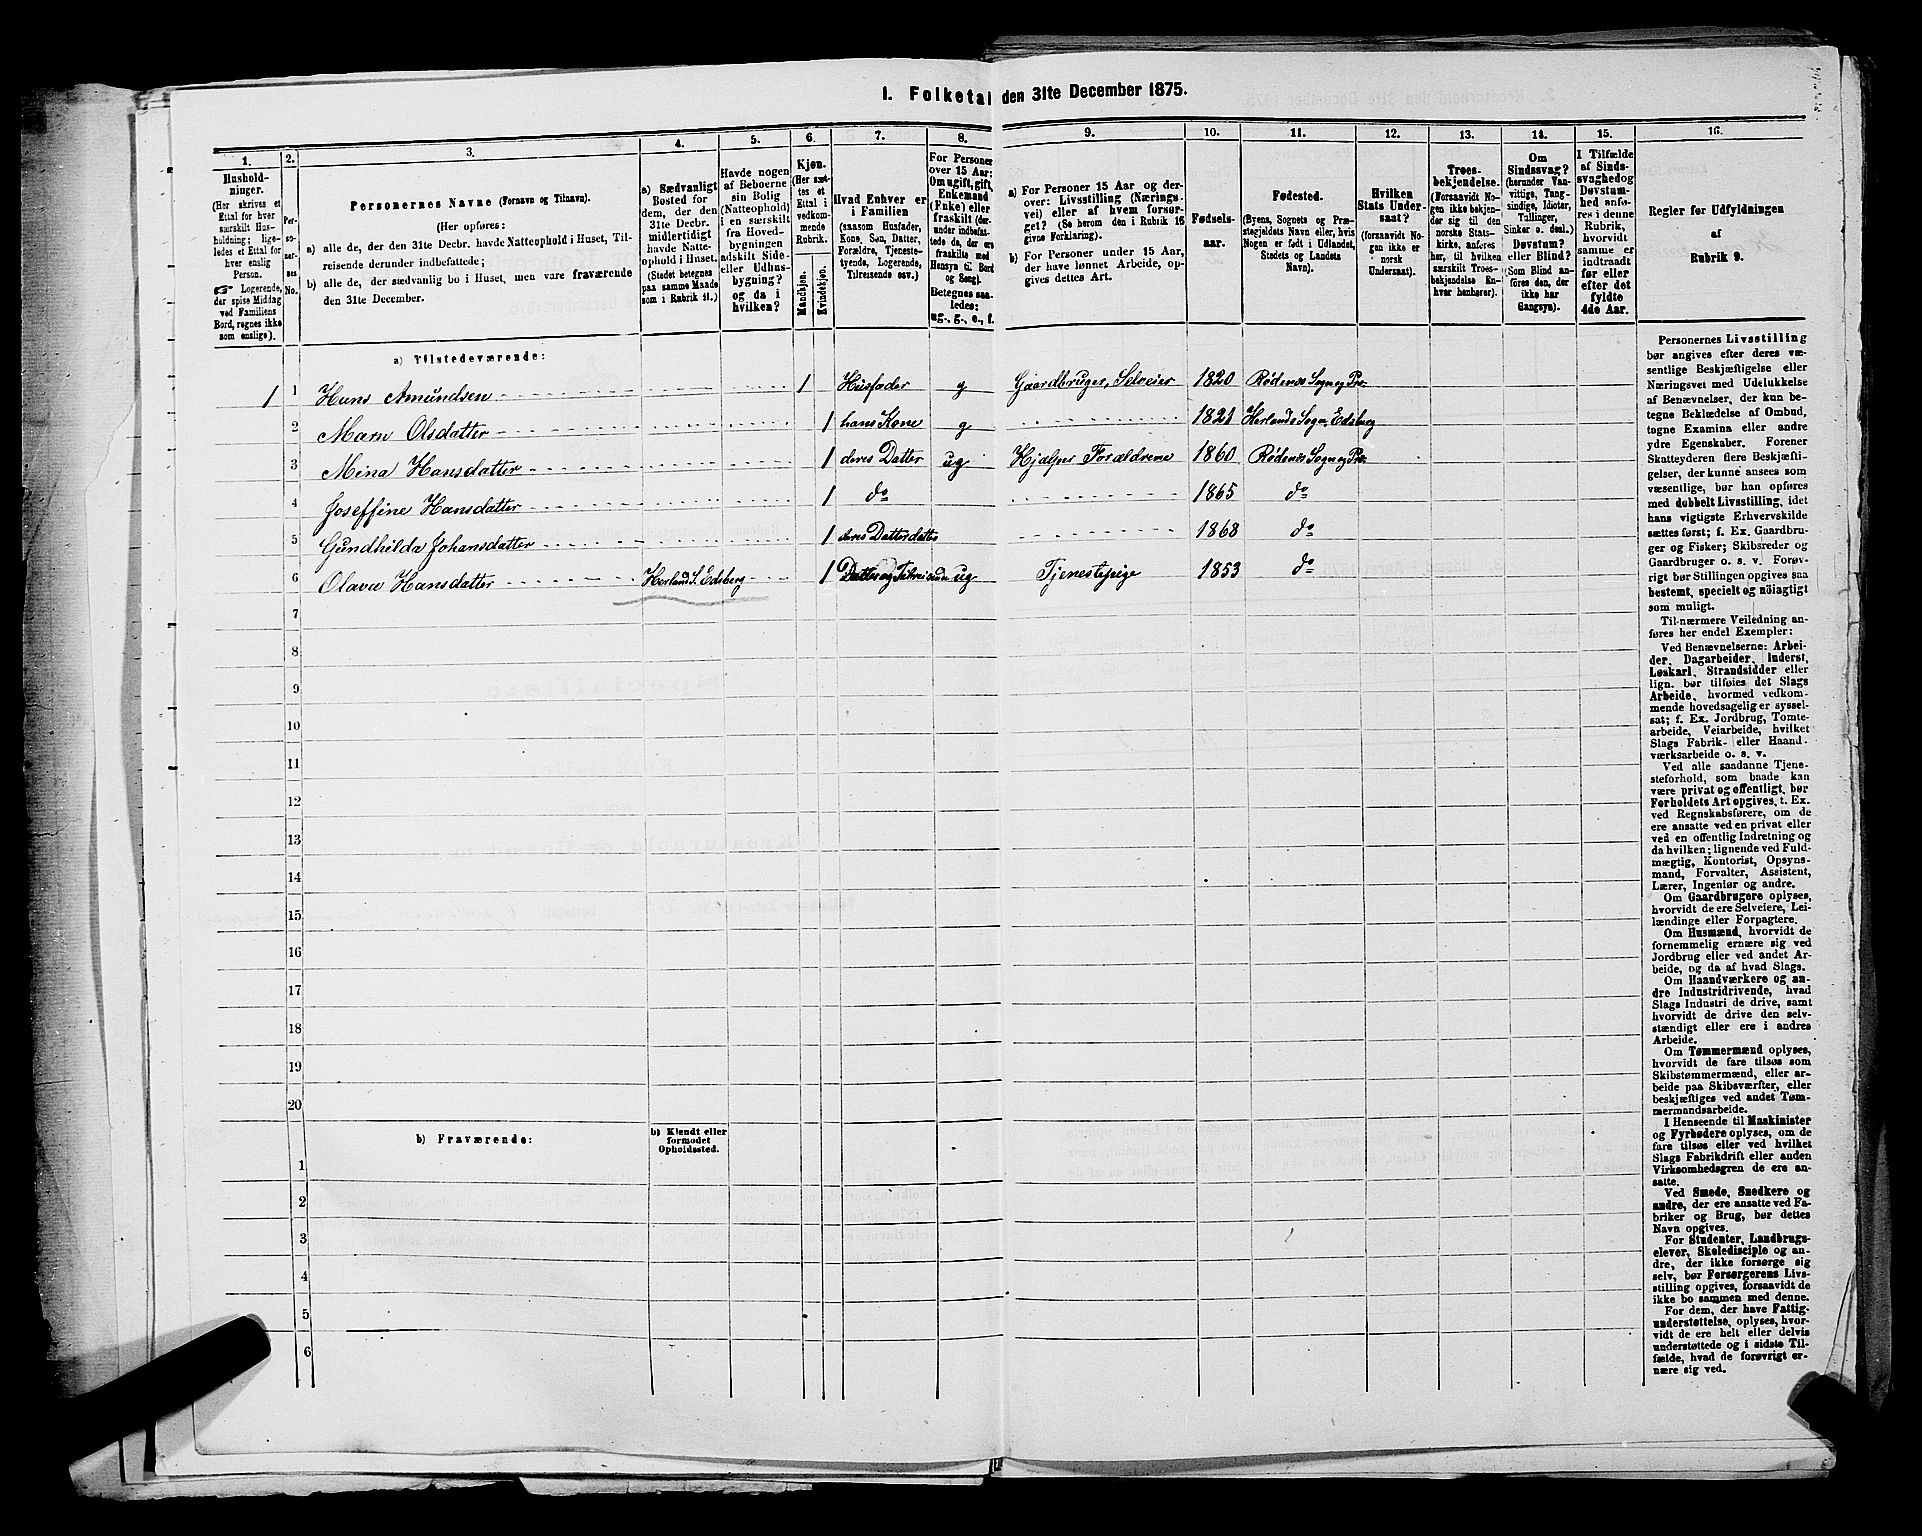 I. Folketal den 31te December 1875.
1. 2. 3. 4. 5. 6. 7. 8. 9. 10. 11. 12. 13. 14. 15. 16.
Hushold-
ninger.
(Her skrives et
Ettal for hver
særskilt Hus-
holdning; lige-
ledes et Ettal for
hver enslig
Person.
☞ Logerende,
der spise Middag
ved Familiens
Bord, regnes ikke
som enslige).
Per-
so-
ner-
nes
No.
Personernes Navne (Fornavn og Tilnavn).
(Her opføres:
a) alle de, der den 31te Decbr. havde Natteophold i Huset, Til-
reisende derunder indbefattede;
b) alle de, der sædvanlig bo i Huset, men vare fraværende
den 31te December.
a) Sædvanligt
Bosted for
dem, der den
31te Decbr.
midlertidigt
havde Natte-
ophold i Huset.
(Stedet betegnes
paa samme Maade
som i Rubrik 11.)
Havde nogen
af Beboerne
sin Bolig
(Natteophold)
i en særskilt
fra Hoved-
bygningen
adskilt Side-
eller Udhus-
bygning?
og da i
hvilken?
Kjøn.
(Her sæt-
tes et
Ettal i
vedkom-
mende
Rubrik.
Mandkjøn.
Kvindekjøn.
Hvad Enhver er
i Familien
(saasom Husfader,
Kone, Søn, Datter,
Forældre, Tjeneste-
tyende, Logerende,
Tilreisende osv.)
For Personer
over 15 Aar:
Om ugift, gift,
Enkemand
(Enke) eller
fraskilt (der-
under indbefat-
tede de, der ere
fraskilte med
Hensyn til Bord
og Seng).
Betegnes saa-
ledes:
ug., g., e., f.
a) For Personer 15 Aar og der-
over: Livsstilling (Nærings-
vei) eller af hvem forsør-
get? (Se herom den i Rubrik 16
givne Forklaring).
b) For Personer under 15 Aar,
der have lønnet Arbeide, op-
gives dettes Art.
Fødsels-
aar.
Fødested.
(Byens, Sognets og Præ-
stegjeldets Navn eller, hvis
Nogen er født i Udlandet,
Stedets og Landets
Navn).
Hvilken
Stats Under-
saat?
(forsaavidt No-
gen ikke er
norsk
Undersaat).
Troes-
bekjendelse.
(Forsaavidt No-
gen ikke bekjen-
der sig til den
norske Stats-
kirke, anføres
her, til hvilken
særskilt Troes-
bekjendelse En-
hver henhører).
Om
Sindssvag?
(herunder Van-
vittige, Tung-
sindige, Idioter,
Tullinger,
Sinker o. desl.)
Døvstum?
eller Blind?
(Som Blind an-
føres den, der
ikke har
Gangsyn).
I Tilfælde
af Sinds-
svaghed og
Døvstum-
hed anfø-
res i denne
Rubrik,
hvorvidt
samme er
indtraadt
før eller
efter det
fyldte
4de Aar.
Regler for Udfyldningen
af
Rubrik 9.
a) Tilstedeværende:
1 1 Hans Amundsen 1 Husfader g Gaardbruger, Selveier 1820 Rødenes Sogn og Pre.
2 Marn Olsdatter 1 hans Kone g 1821 Herlands Sogn, Edsberg
3 Mina Hansdatter 1 deres Datter ug Hjælper Forældrene 1860 Rødenes Sogn og Pre.
4 Joseffine Hansdatter 1 do 1865 do
5 Gundhilda Johansdatter 1 deres Datterdatter 1868 do
6 Olava Hansdatter Herland S. Edsberg 1 Datter og ug Tjenestepige 1853 do
7
8
9
10
11
12
13
14
15
16
17
18
19
20
b) Fraværende:
b) Kjendt eller
formodet
Opholdssted.
1
2
3
4
5
6
Personernes Livsstilling
bør angives efter deres væ-
sentlige Beskjæftigelse eller
Næringsvei med Udelukkelse
af Benævnelser, der kun be-
tegne Beklædelse af Ombud,
tagne Examina eller andre
ydre Egenskaber. Forener
Skatteyderen flere Beskjæfti-
gelser, der kunne ansees som
væsentlige, bør han opføres
med dobbelt Livsstilling, idet
hans vigtigste Erhvervskilde
sættes først; f. Ex. Gaardbru-
ger og Fisker; Skibsreder og
Gaardbruger o. s. v. Forøv-
rigt bør Stillingen opgives saa
bestemt, specielt og nöiagtigt
som muligt.
Til nærmere Veiledning an-
føres her endel Exempler:
Ved Benævnelserne: Arbei-
der, Dagarbeider, Inderst,
Løskarl, Strandsidder eller
lign. bør tilføies det Slags
Arbeide, hvormed vedkom-
mende hovedsagelig er syssel-
sat; f. Ex. Jordbrug, Tomte-
arbeide, Veiarbeide, hvilket
Slags Fabrik- eller Haand-
værksarbeide o. s. v.
Ved alle saadanne Tjene-
steforhold, som baade kan
være privat og offentligt, bør
Forholdets Art opgives, t. Ex.
ved Regnskabsførere, om de
ere ansatte ved en privat eller
ved en offentlig Indretning og
da hvilken; lignende ved Fuld-
mægtig, Kontorist, Opsyns-
mand, Forvalter, Assistent,
Lærer, Ingeniør og andre.
Om Gaardbrugere oplyses,
hvorvidt de ere Selveiere, Lei-
lændinge eller Forpagtere.
Om Husmænd, hvorvidt de
fornemmelig ernære sig ved
Jordbrug eller ved andet Ar-
beide, og da af hvad Slags.
Om Haandværkere og an-
dre Industridrivende, hvad
Slags Industri de drive, samt
hvorvidt de drive den selv-
stændigt eller ere i andres
Arbeide.
Om Tømmermænd oplyses,
hvorvidt de fare tilsøs som
Skibstømmermænd, eller ar-
beide paa Skibsværfter, eller
beskjæftiges ved andet Tøm-
mermandsarbeide.
I Henseende til Maskinister
og Fyrbødere oplyses, om de
fare tilsøs eller ved hvilket
Slags Fabrikdrift eller anden
Virksomhedsgren de ere an-
satte.
Ved Smede, Snedkere og
andre, der ere ansatte ved Fa-
briker og Brug, bør dettes
Navn opgives.
For Studenter, Landbrugs-
elever, Skoledisciple og an-
dre, der ikke forsørge sig
selv, bør Forsørgerens Livs-
stilling opgives, forsaavidt de
ikke bo sammen med denne.
For dem, der have Fattig-
understøttelse, oplyses, hvor-
vidt de ere helt eller delvis
understøttede og i sidste Til-
fælde, hvad de forøvrigt er-
nære sig ved.